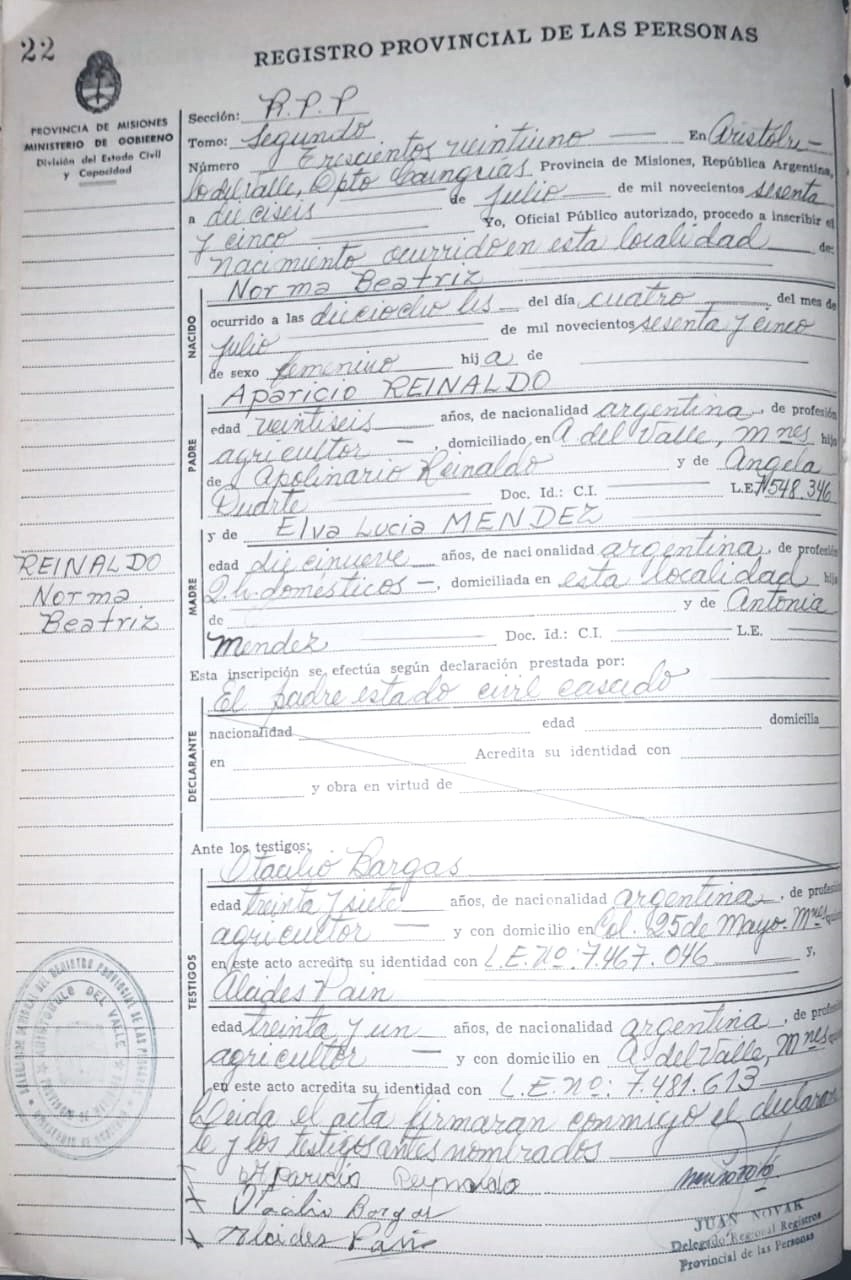 22
REGISTRO PROVINCIAL DE LAS PERSONAS
PROVINCIA DE MISIONES
MINISTERIO DE GOBIERNO
División del Estado Civil
y Capacidad
Sección: R.P.P
Tomo: Segundo
Número Trescientos veintiuno — En Aristóbu-
lo del Valle, Dpto Cainguás Provincia de Misiones, República Argentina,
a dieciseis de julio de mil novecientos sesenta
y cinco Yo, Oficial Público autorizado, procedo a inscribir el
nacimiento ocurrido en esta localidad de:
NACIDO
Norma Beatriz
ocurrido a las dieciocho hs del día cuatro del mes de
julio de mil novecientos sesenta y cinco
de sexo femenino hija de
PADRE
Aparicio REINALDO
edad veintiseis años, de nacionalidad argentina, de profesión
agricultor —, domiciliado en A del Valle, Mnes hijo
de Apolinario Reinaldo y de Angela
Duarte Doc. Id.: C.I. L.E. 7.548.346
MADRE
y de Elva Lucia MENDEZ
edad diecinueve años, de nacionalidad argentina, de profesión
Q.h. domésticos —, domiciliada en esta localidad hija
de y de Antonia
Mendez Doc. Id.: C.I. L.E.
REINALDO
Norma
Beatriz
Esta inscripción se efectúa según declaración prestada por:
El padre estado civil casado
DECLARANTE
nacionalidad edad domicilia
en Acredita su identidad con
y obra en virtud de
Ante los testigos:
TESTIGOS
Otacilio Bargas
edad treinta y siete años, de nacionalidad argentina, de profesión
agricultor — y con domicilio en Col. 25 de Mayo. Mnes quien
en este acto acredita su identidad con L.E. Nº: 7.467.046 y,
Alcides Pain
edad treinta y un años, de nacionalidad argentina, de profesión
agricultor — y con domicilio en A. del Valle, Mnes quien
en este acto acredita su identidad con L.E. nº: 7.481.613
Leida el acta firmaran conmigo el declaran
te y los testigos antes nombrados
Aparicio Reynaldo
Otacilio Bargas
Alcides Pain
JUAN NOVAK
Delegado Regional Registros
Provincial de las Personas
ARISTOBULO DEL VALLE